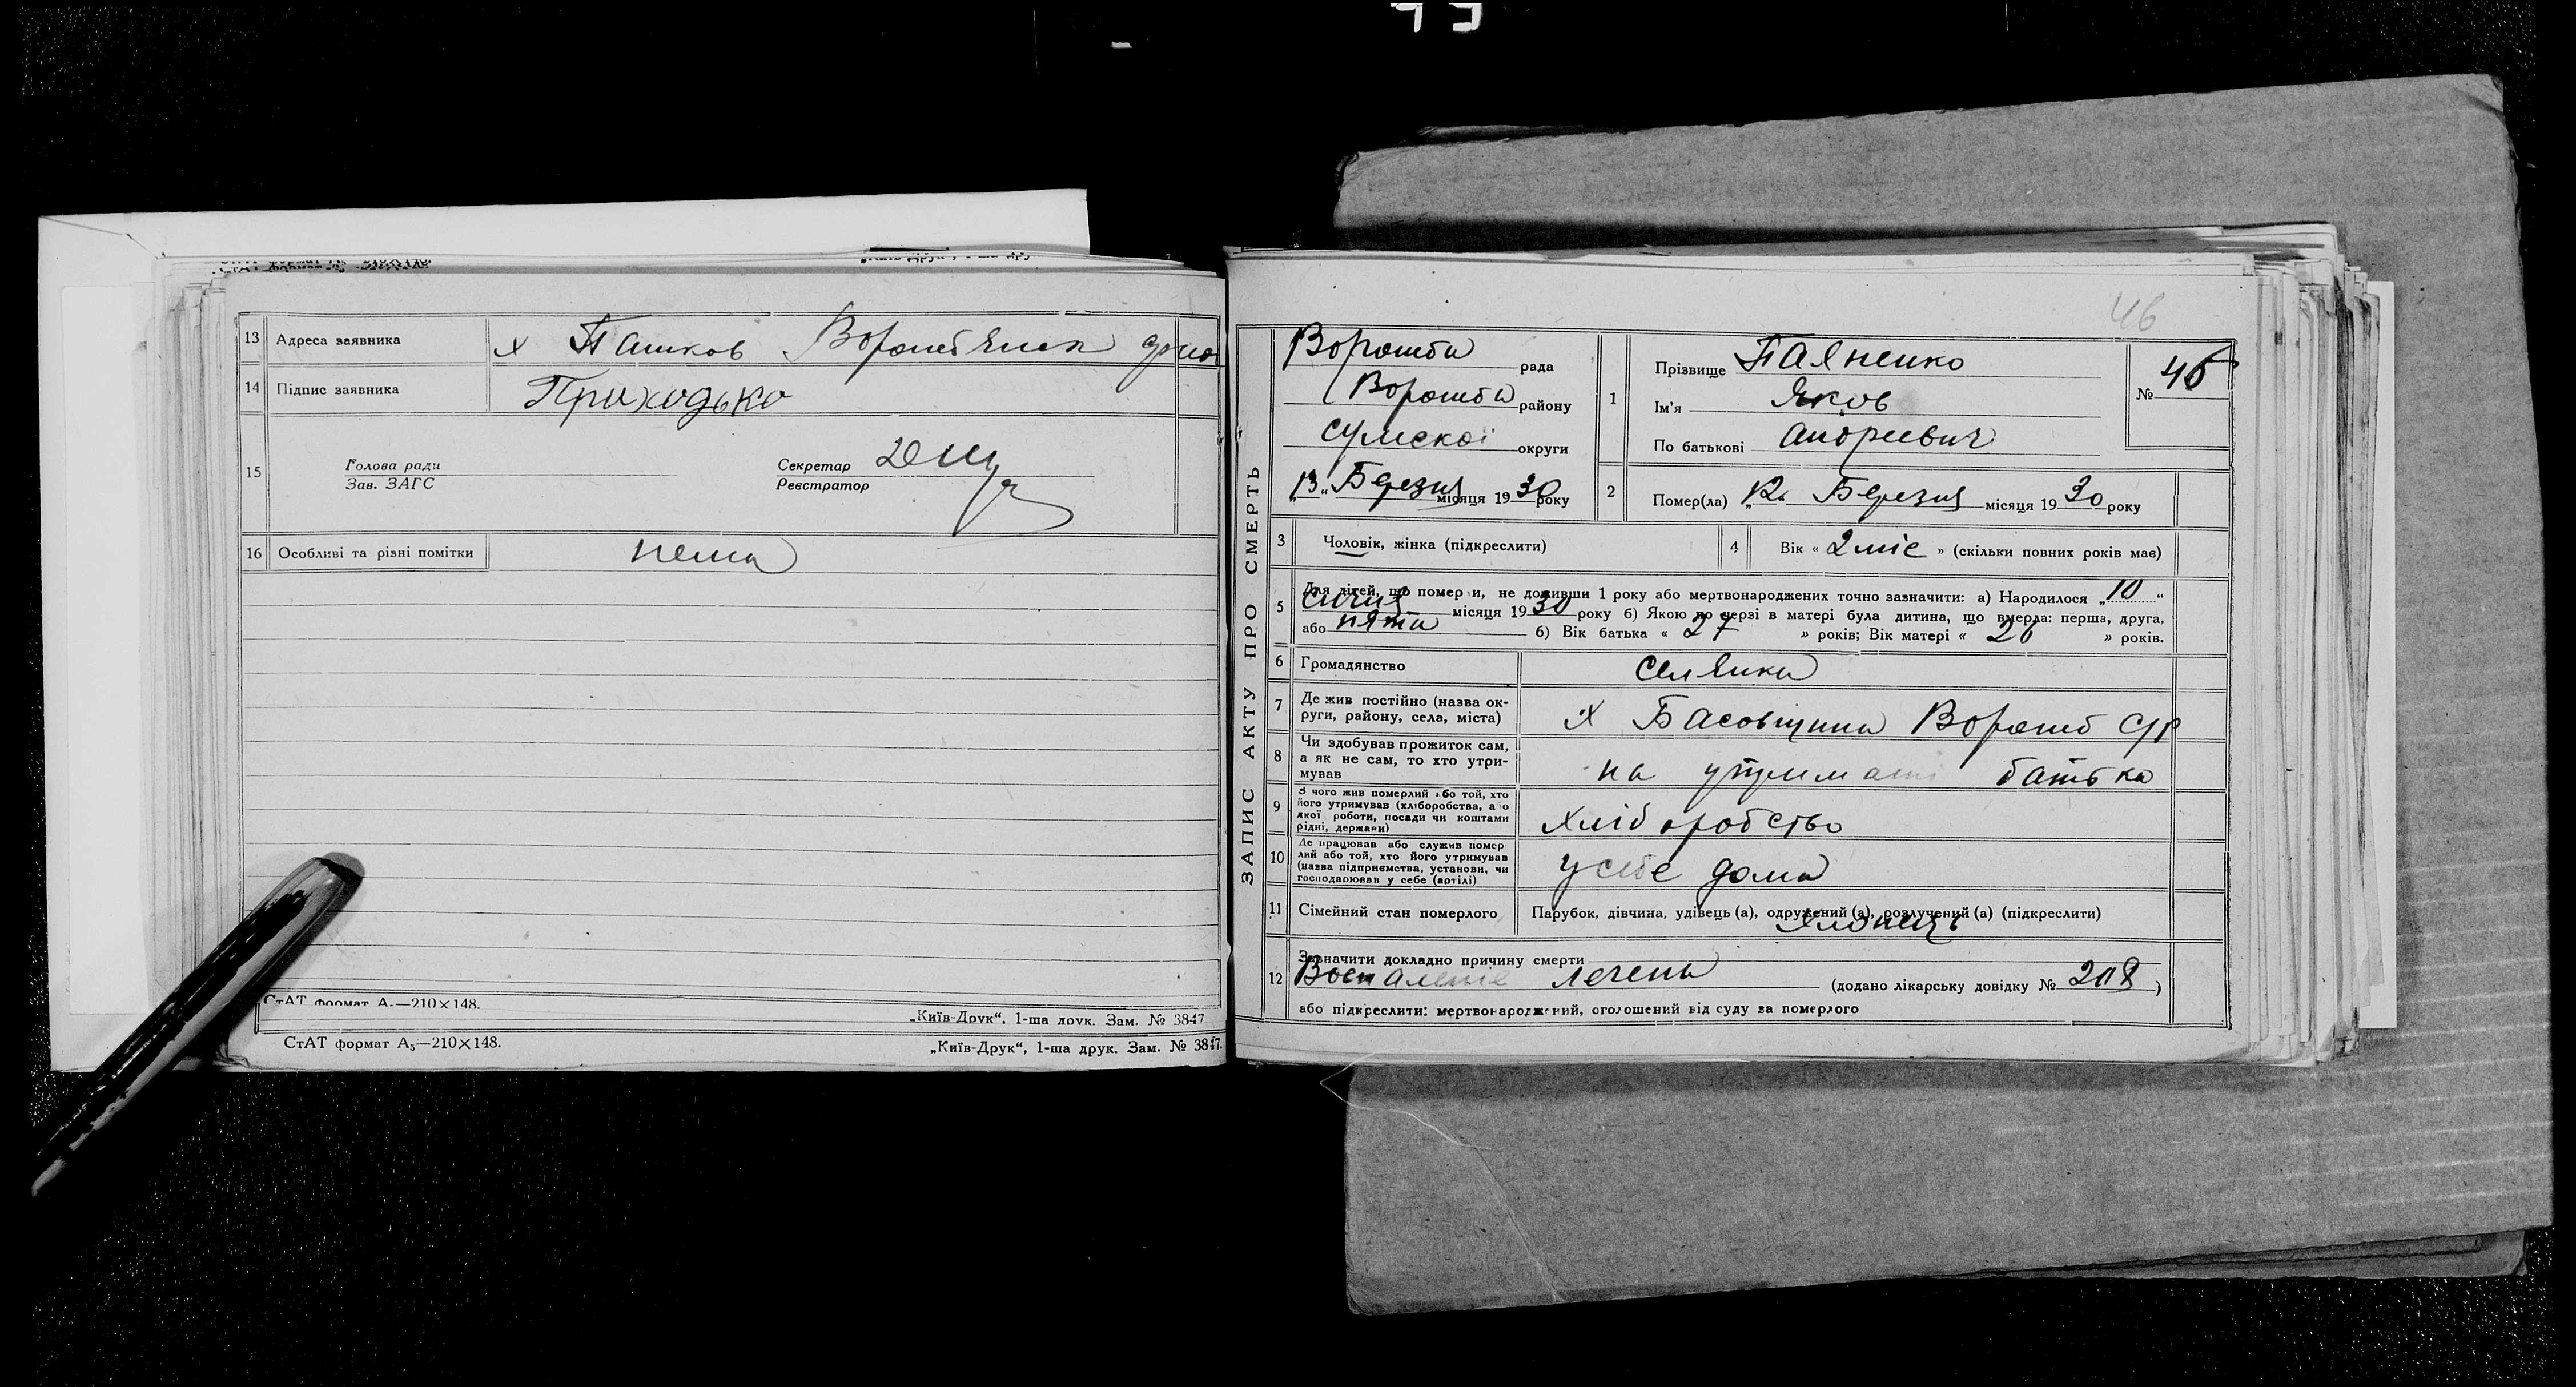 13 Адреса заявника х Пашков Ворожбянск
14 Підпис заявника Приходько
15 Голова ради Секретар
Зав. ЗАГС Реєстратор
16 Особливі та різні помітки нема
СтАТ формат А₅—210×148.
„Київ-Друк“, 1-ша друк. Зам. № 3847
СтАТ формат А₅—210×148.
„Київ-Друк“, 1-ша друк. Зам. № 3847.
46
ЗАПИС АКТУ ПРО СМЕРТЬ
Ворожба рада
Ворожба району
Сумскої округи
„13“ Березня місяця 1930 року
1 Прізвище Паяненко
Ім'я Яков
По батькові Андреевич
№ 46
2 Помер(ла) „12 Березня місяця 1930 року
3 Чоловік, жінка (підкреслити)
4 Вік « 2 міс » (скільки повних років має)
5 Для дітей, що померли, не доживши 1 року або мертвонароджених точно зазначити: а) Народилося „10“
Січня місяця 1930 року б) Якою по черзі в матері була дитина, що вмерла: перша, друга,
або пята б) Вік батька « 27 » років; Вік матері « 26 » років.
6 Громадянство селянин
7 Де жив постійно (назва ок-
руги, району, села, міста) х Басовщина Ворожб с/р
8 Чи здобував прожиток сам,
а як не сам, то хто утри-
мував на утримані батька
9 З чого жив померлий або той, хто
його утримував (хліборобства, або
якої роботи, посади чи коштами
рідні, держави) Хліборобство
10 Де працював або служив помер
лий або той, хто його утримував
(назва підприємства, установи, чи
господарював у себе (артілі) у себе дома
11 Сімейний стан померлого Парубок, дівчина, удівець (а), одружений (а), розлучений (а) (підкреслити)
Хлопець
12 Зазначити докладно причину смерти
Воспаление (додано лікарську довідку № 208)
або підкреслити: мертвонароджений, оголошений від суду за померлого